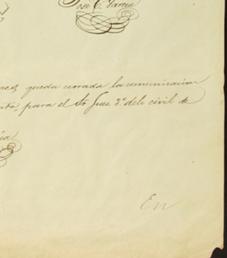 José C. García
queda cerrada la comunicación
para el Sr Juez 2º de lo civil de
En